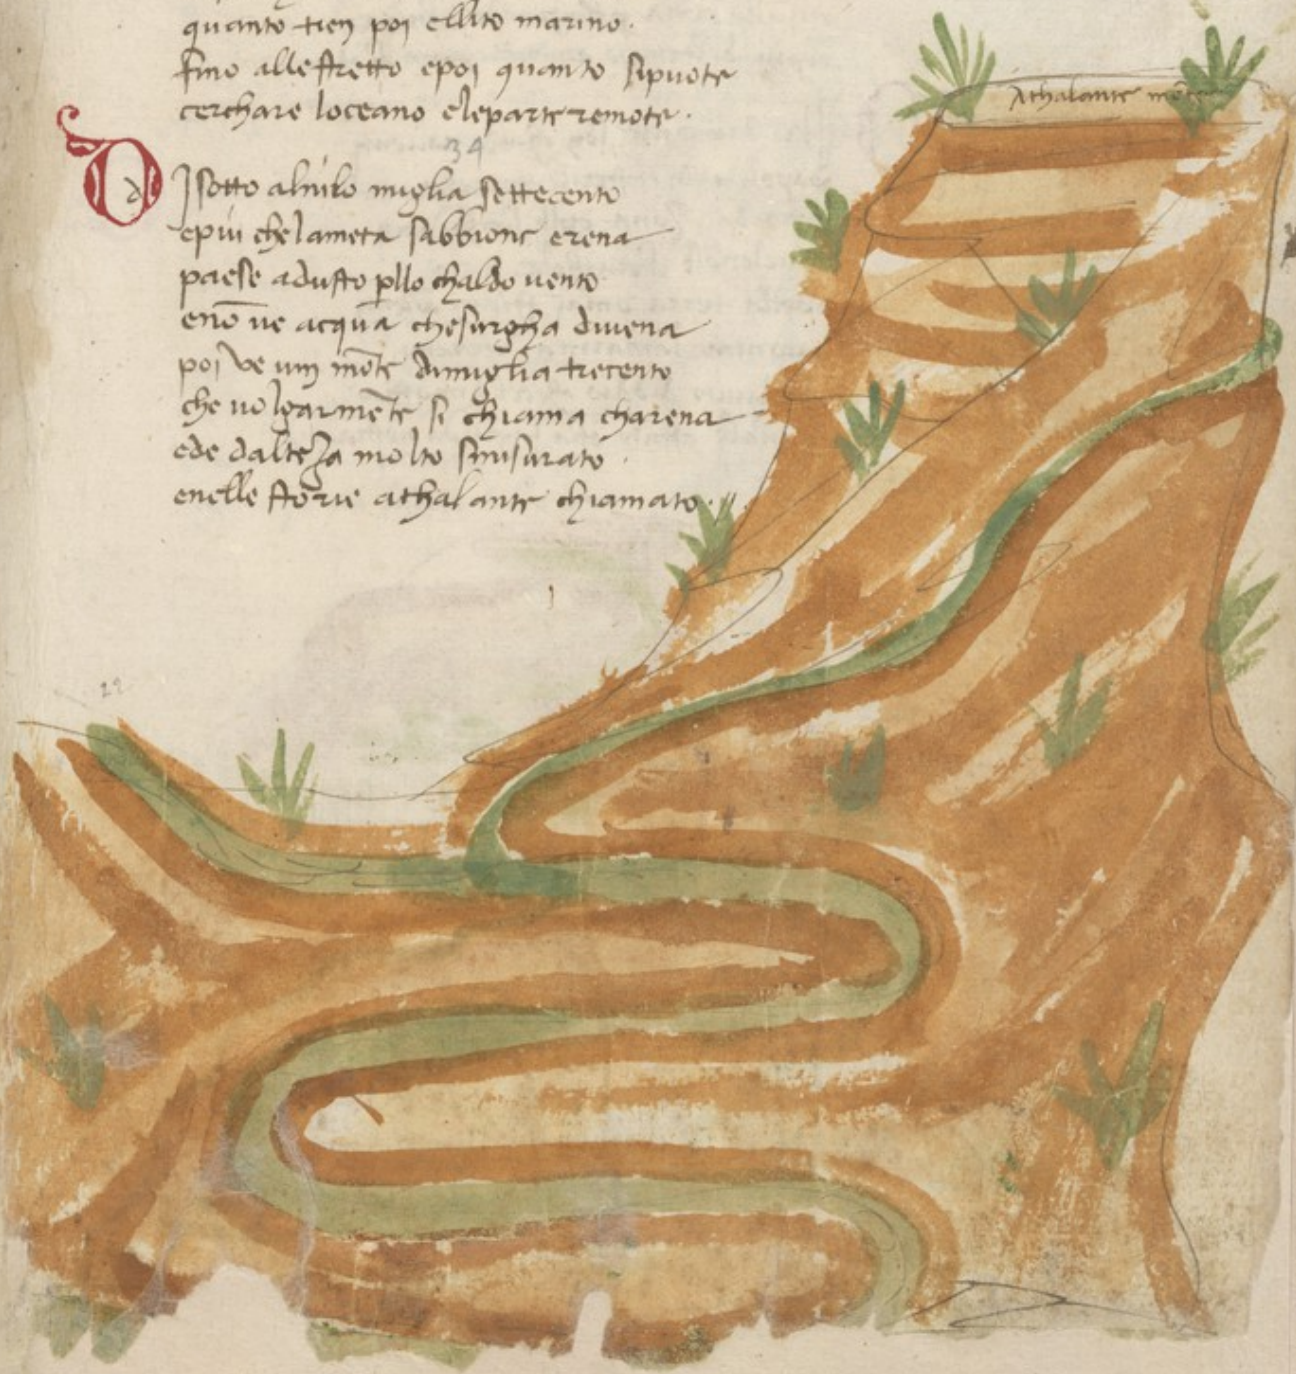 quanto tien poi ellito marino.
fino allestretto epoi quanto sipuote
cerchare loceano eleparte remote.
34
D
d
Isotto alnilo miglia settecento
epiu chelameta sabbione erena
paese adusto pllo chaldo vento
enō ve acqua chesurgha divena
poi ve um mōte dimiglia trecento
che volgarmēte si chiama charena
ede dalteza molto smisurato.
enelle storie athalante chiamato.
Athalante
22